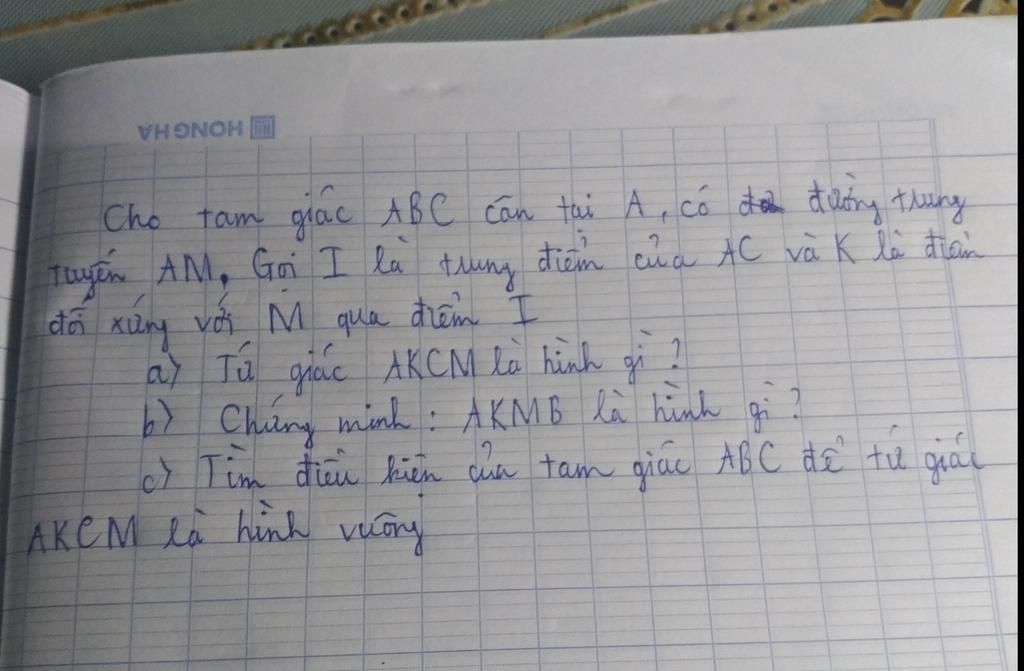 HONG HA
Cho tam giác ABC cân tại A, có đường trung
tuyến AM. Gọi I là trung điểm của AC và K là điểm
đối xứng với M qua điểm I
a) Tứ giác AKCM là hình gì?
b) Chứng minh: AKMB là hình gì?
c) Tìm điều kiện của tam giác ABC để tứ giác
AKCM là hình vuông